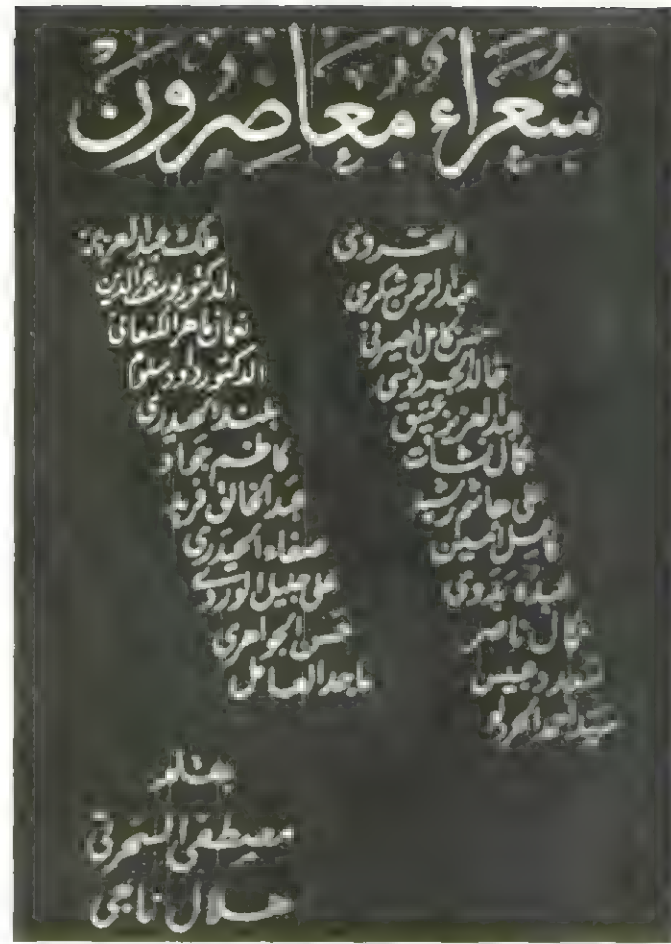 شُعَرَاءُ مُعَاصِرُونَ
العروضى
عبدالرحمن شكرى
حسن كامل الصيرفى
خالد الجرنوسى
عبدالعزيز عتيق
كمال نشأت
على هاشم رشيد
كامل أمين
عبده بدوى
كمال ناصر
سعيد دعبيس
سيد أحمد الحردلو
ملك عبدالعزيز
الدكتور يوسف عزالدين
نعمان ماهر الكنعانى
الدكتور داود سلوم
بلند الحيدرى
كاظم جواد
عبدالخالق فريد
صفاء الحيدرى
على جليل الوردى
حسن الجواهرى
ماجد العامل
بقلم
مصطفى السحرتى
هلال ناجى